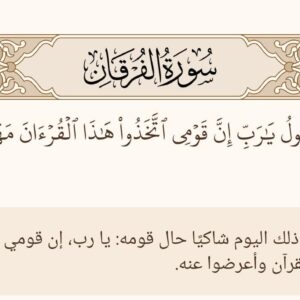 سُورَةُ الفُرْقَانِ
يَٰرَبِّ إِنَّ قَوْمِى ٱتَّخَذُوا۟ هَٰذَا ٱلْقُرْءَانَ
ذلك اليوم شاكيًا حال قومه: يا رب، إن قومي
وأعرضوا عنه.